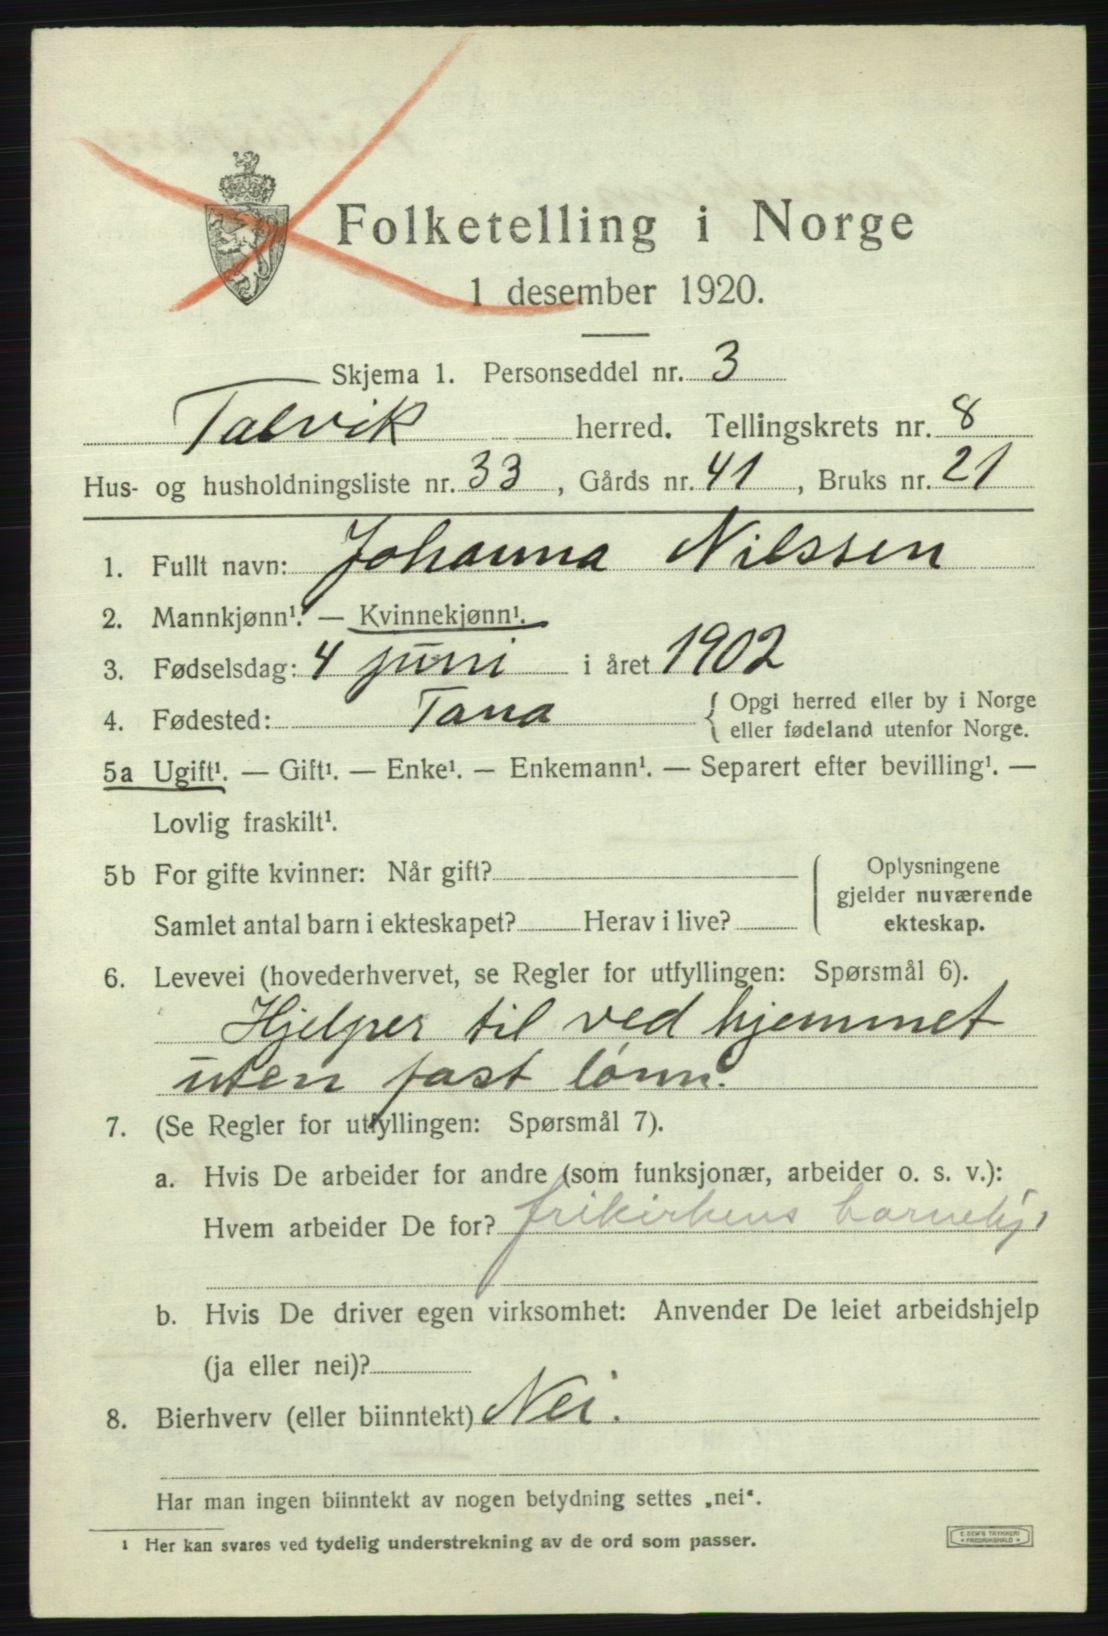 Folketelling i Norge
1 desember 1920.
Skjema 1. Personseddel nr. 3
Talvik herred. Tellingskrets nr. 8
Hus- og husholdningsliste nr. 33, Gårds nr. 41, Bruks nr. 21
1. Fullt navn: Johanna Nilssen
2. Mannkjønn¹. — Kvinnekjønn¹.
3. Fødselsdag: 4 juni i året 1902
4. Fødested: Tana { Opgi herred eller by i Norge
eller fødeland utenfor Norge.
5a Ugift¹. — Gift¹. — Enke¹. — Enkemann¹. — Separert efter bevilling¹. —
Lovlig fraskilt¹.
5b For gifte kvinner: Når gift?
Samlet antal barn i ekteskapet? Herav i live?
Oplysningene
gjelder nuværende
ekteskap.
6. Levevei (hovederhvervet, se Regler for utfyllingen: Spørsmål 6).
Hjelper til ved hjemmet
uten fast lønn.
7. (Se Regler for utfyllingen: Spørsmål 7).
a. Hvis De arbeider for andre (som funksjonær, arbeider o. s. v.):
Hvem arbeider De for? frikirkens barnehj.
b. Hvis De driver egen virksomhet: Anvender De leiet arbeidshjelp
(ja eller nei)?
8. Bierhverv (eller biinntekt) Nei.
Har man ingen biinntekt av nogen betydning settes „nei“.
¹ Her kan svares ved tydelig understrekning av de ord som passer.
E. SEM'S TRYKKERI
• FREDRIKSHALD •